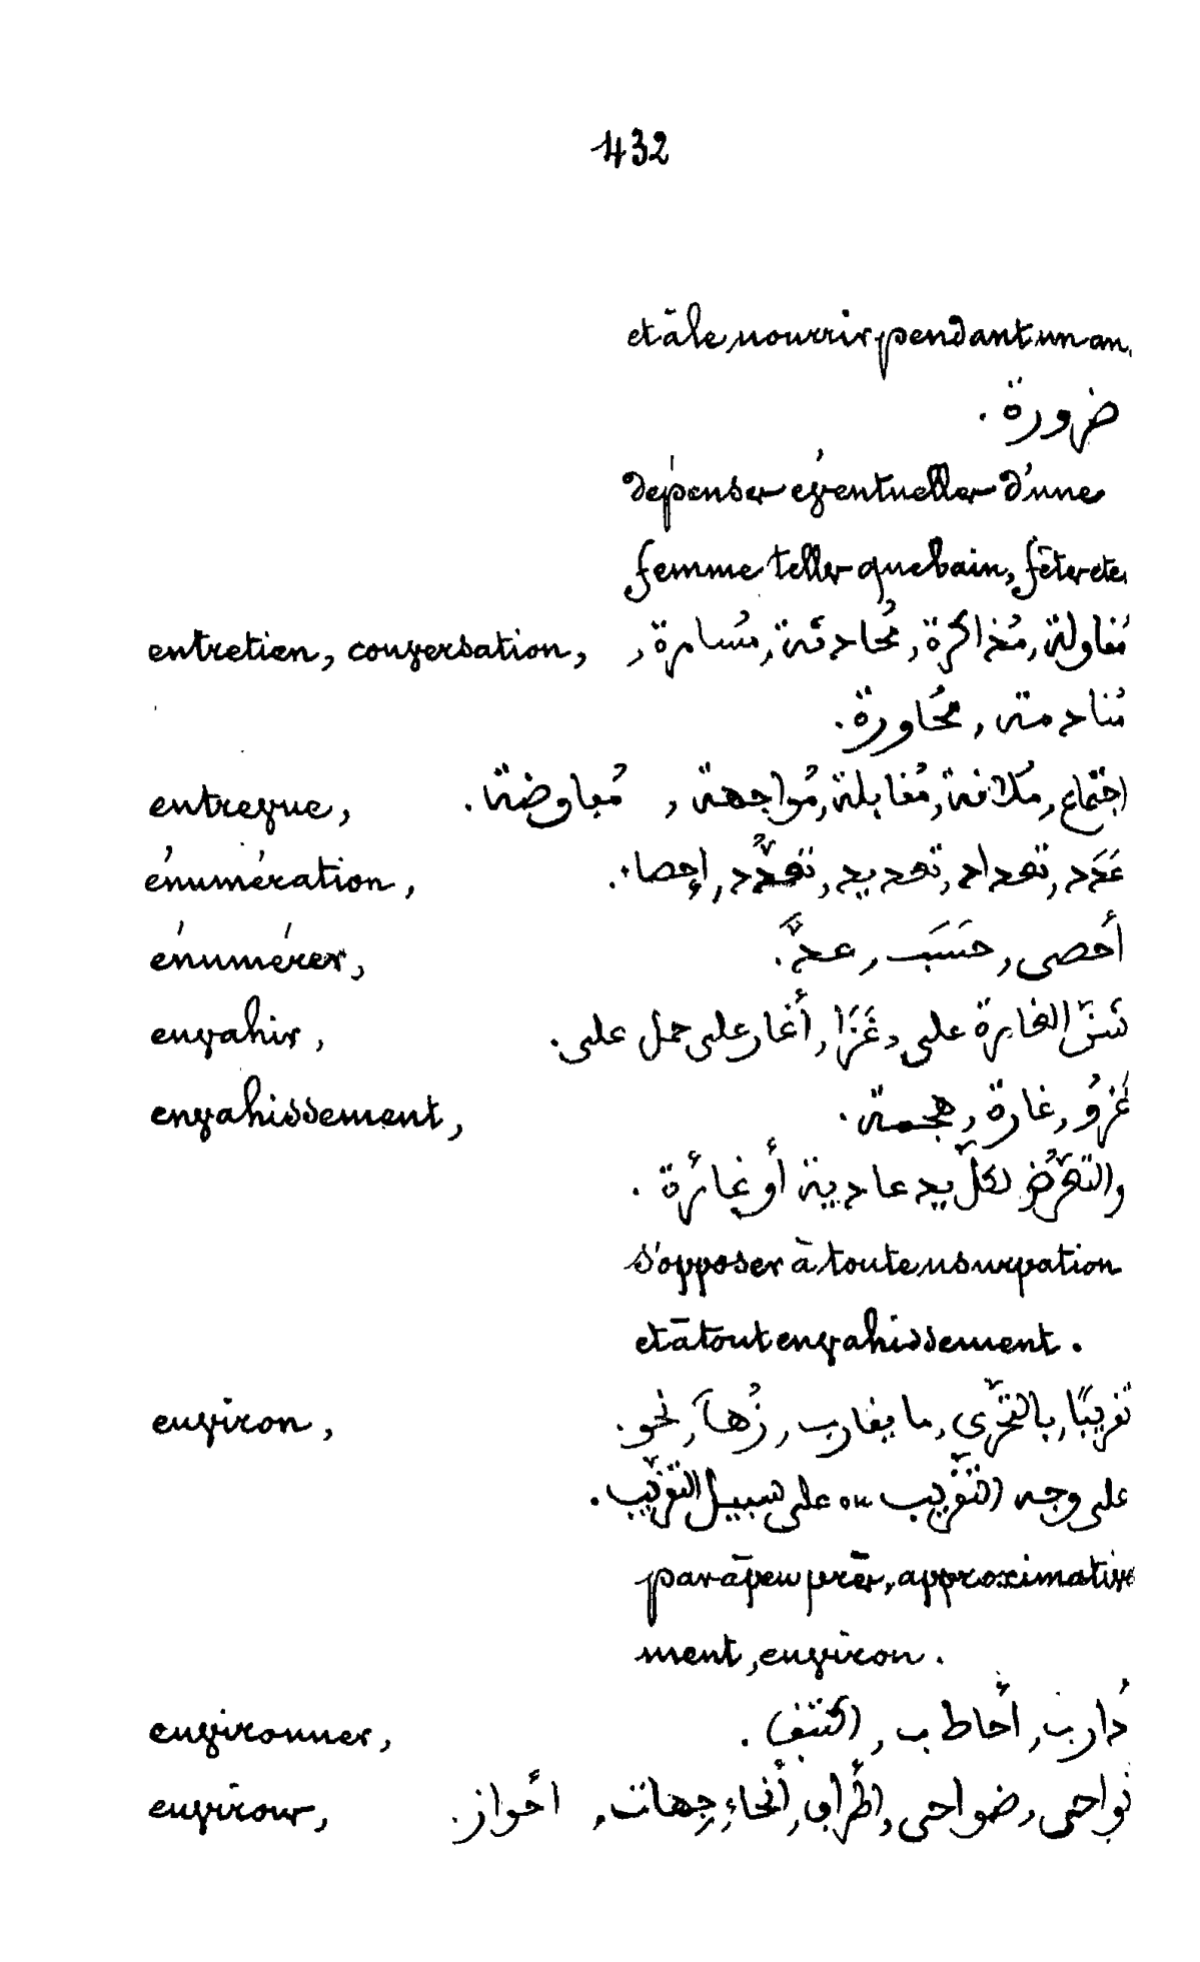 432
et à le nourrir pendant un an.
ضرورة .
dépenses éventuelles d'une
femme telles que bain, fêtes etc.
entretien, conversation, مُقاولة, مُذاكرة, مُحادثة, مُسامرة,
مُنادمة, مُحاورة.
entrevue, اجتماع, مُلاقة, مُقابلة, مُواجهة, مُفاوضة.
énumération, عَدَد, تعداد, تعديد, تعدُّد, إحصاء.
énumérer, أحصى, حَسَب, عدّ.
envahir, شنّ الغارة على, غَزَا, أغار على حمل على.
envahissement, غَزوُ, غارة, هجمة.
والتعرُّض لكلّ يد عادية أو غائرة .
s'opposer à toute usurpation
et à tout envahissement.
environ, تقريبًا, بالتحرّي, ما يقارب, زُهآ, نحو.
على وجه التّقريب ou على سبيل التّقريب.
par à peu près, approximative
ment, environ.
environner, دار ب, أحاط ب, اكتنف.
environs, نواحى, ضواحى, أطراف, أنحاء, جهات, أحواز.